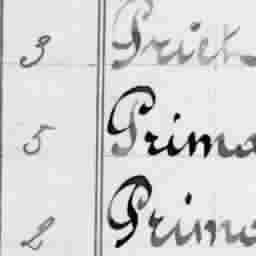 3 Priet
5 Prima
2 Primo